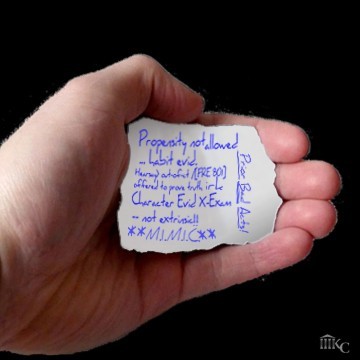 Propensity not allowed
... habit evid.
Hearsay out of crt / [FRE 801]
offered to prove truth
Character Evid X-Exam
... not extrinsic!!
**M.I.M.I.C**
Prior Bad Acts!
KC